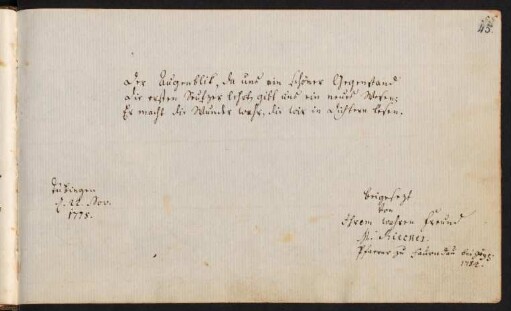 45.
Der Augenblik, da uns ein schöner Gegenstand
Die ersten Seufzer lehrt, gibt uns ein neues Wesen;
Er macht die Wunder wahr, die wir in Dichtern lesen.
Tubingen
d. 22. Nov.
1778.
beigesezt
von
Ihrem wahren Freund
M.
Pfarrer zu Faurndau
1782.